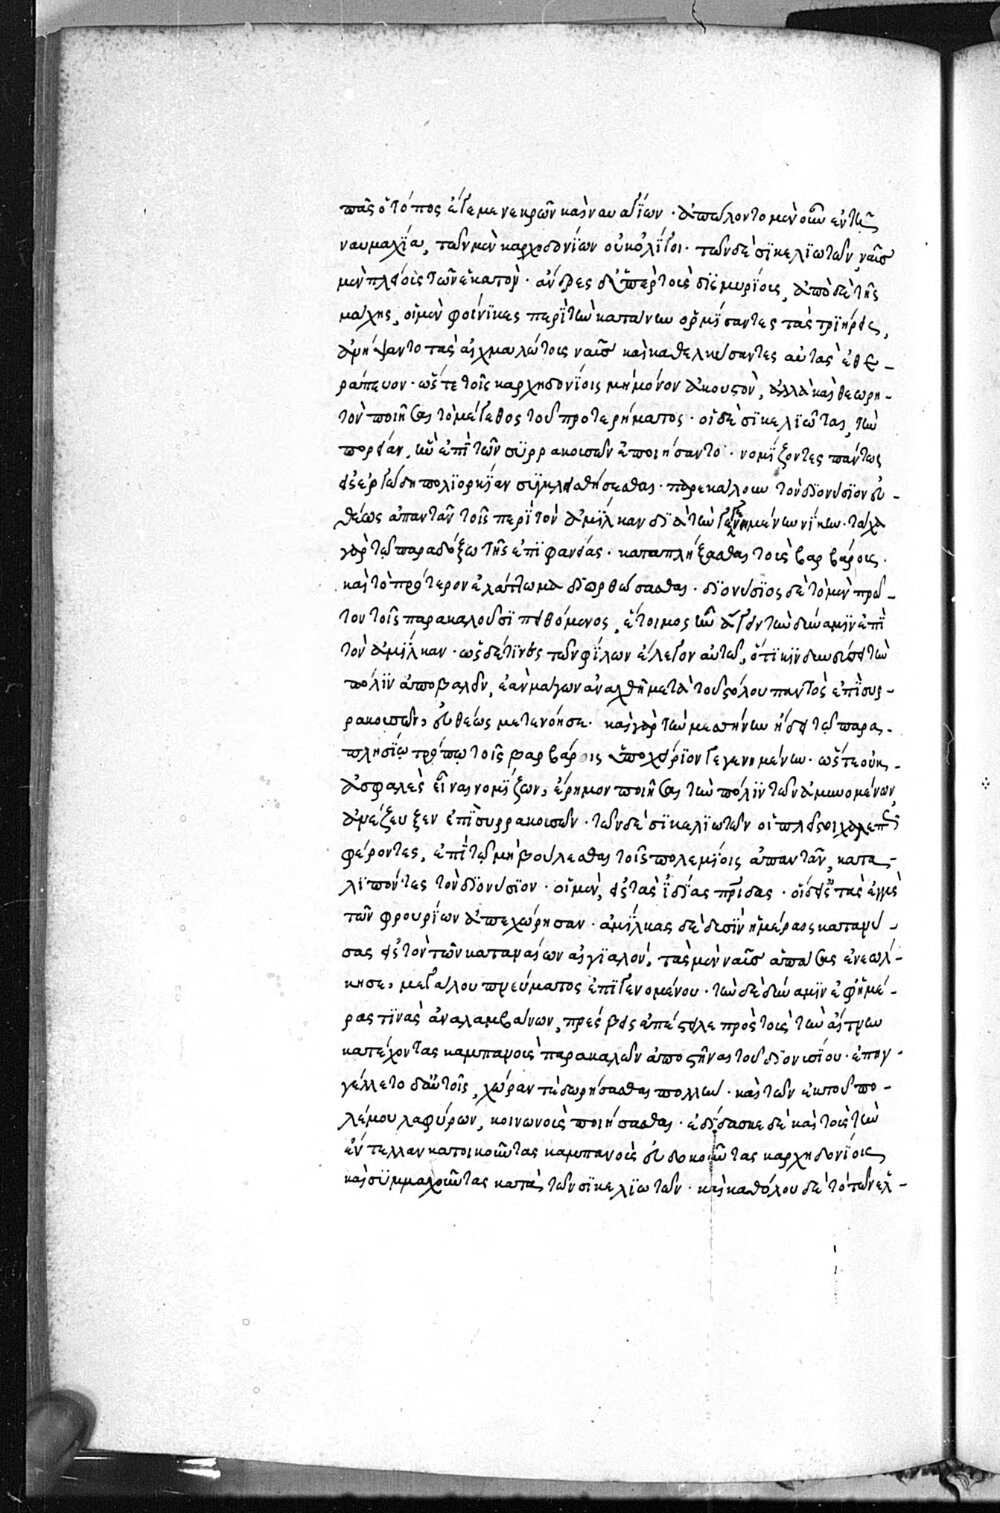 πᾶς ὁ τόπος ἔγεμε νεκρῶν καὶ ναυαγίων · ἀπώλοντο μὲν οὖν ἐν τῇ
ναυμαχία, τῶν μὲν καρχηδονίων οὐκ ὀλίγοι · τῶν δὲ σικελιωτῶν, ναῦς
μὲν πλείους τῶν ἑκατὸν · ἄνδρες δ' ὑπὲρ τοὺς δισμυρίους, ἀπὸ δὲ τῆς
μάχης, οἱ μὲν φοίνικες περὶ τὼ κατάνω ὁρμίσαντες τὰς τριήρεις,
ἀνήψαντο τὰς αἰχμαλώτους ναῦς καὶ καθελκύσαντες αὐτὰς ἐθε-
ράπευον · ὥστε τοῖς καρχηδονίοις μὴ μόνον ἀκουστὸν, ἀλλὰ καὶ θεωρη-
τὸν ποιῆσαι τὸ μέγεθος τοῦ προτερήματος · οἱ δὲ σικελιῶται, τὼ
πορείαν, ὡς ἐπὶ τῶν συρρακουσῶν ἐποιήσαντο · νομίζοντες πάντως
εἰς ἐργώδη πολιορκίαν συγκλεισθήσεσθαι · παρεκάλουν τὸν διονύσιον εὐ-
θέως ἀπαντᾶν τοῖς περὶ τὸν ἀμίλκαν διὰ τὼ γεγενημένων νίκων · τάχα
γὰρ τῷ παραδόξω τῆς ἐπιφανείας · καταπλήξασθαι τοὺς βαρβάρους ·
καὶ τὸ πρότερον ἐλάττωμα διορθώσασθαι · διονύσιος δὲ τὸ μὲν πρῶ-
τον τοῖς παρακαλοῦσι πειθόμενος, ἕτοιμος ἦν ἄγειν τὼ δύναμιν ἐπὶ
τὸν ἀμίλκαν · ὡς δέ τινες τῶν φίλων ἔλεγον αὐτῷ, ὅτι κινδυνεύσει τὼ
πόλιν ἀποβαλεῖν, ἐὰν μάγων ἀναχθῆ μετὰ τοῦ στόλου παντὸς ἐπὶ συρ-
ρακουσῶν, εὐθέως μετενόησε · καὶ γὰρ τὼ μεσσήνω ἤδει τῷ παρα-
πλησίω τρόπω τοῖς βαρβάροις ὑποχείριον γεγενημένων · ὥστε οὐκ
ἀσφαλὲς εἶναι νομίζων, ἔρημον ποιῆσαι τὼ πόλιν τῶν ἀμυνομένων
ἀνέζευξεν ἐπὶ συρρακουσῶν · τῶν δὲ σικελιωτῶν οἱ πλεῖστοι χαλεπῶς
φέροντες, ἐπὶ τῷ μὴ βούλεσθαι τοῖς πολεμίοις ἀπαντᾶν, κατα-
λιπόντες τὸν διονύσιον · οἱ μὲν, εἰς τὰς ἰδίας πατρίδας · οἱ δ' εἰς τὰς ἐγγὺς
τῶν φρουρίων ἀπεχώρησαν · ἀμίλκας δὲ δυσὶν ἡμέραις καταπλεύ-
σας εἰς τὸν τῶν καταναίων αἰγιαλὸν, τὰς μὲν ναῦς ἁπάσας ἐνεώλ-
κησε, μεγάλου πνεύματος ἐπιγενομένου · τὼ δὲ δύναμιν ἐφ' ἡμέ-
ρας τινὰς ἀναλαμβάνων, πρέσβεις ἀπέστειλε πρὸς τοὺς τὼ αἴτνων
κατέχοντας καμπανοὺς παρακαλῶν ἀποστῆναι τοῦ διονυσίου · ἐπηγ-
γέλλετο δ' αὐτοῖς, χώραν τε δωρήσασθαι πολλὼ · καὶ τῶν ἐκ τοῦ πο-
λέμου λαφύρων, κοινωνοὺς ποιήσασθαι · ἐδίδασκε δὲ καὶ τοὺς τὼ
ἔντελλαν κατοικοῦντας καμπανοὺς εὐδοκοῦντας καρχηδονίοις
καὶ συμμαχοῦντας κατὰ τῶν σικελιωτῶν · καὶ καθόλου δὲ τὸ τῶν ἑλ-